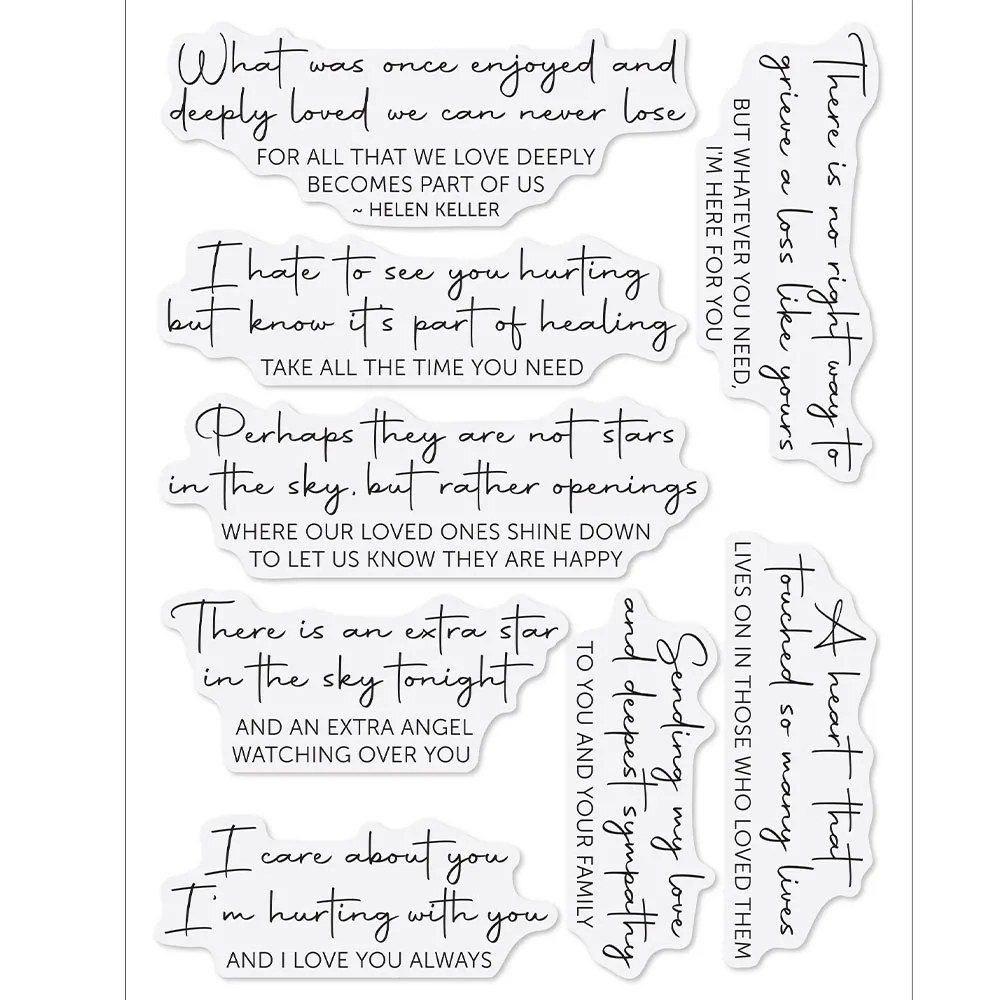 What was once enjoyed and
deeply loved we can never lose
FOR ALL THAT WE LOVE DEEPLY
BECOMES PART OF US
~ HELEN KELLER
There is no right way to
grieve a loss like yours
BUT WHATEVER YOU NEED,
I'M HERE FOR YOU
I hate to see you hurting
but know it's part of healing
TAKE ALL THE TIME YOU NEED
Perhaps they are not stars
in the sky, but rather openings
WHERE OUR LOVED ONES SHINE DOWN
TO LET US KNOW THEY ARE HAPPY
There is an extra star
in the sky tonight
AND AN EXTRA ANGEL
WATCHING OVER YOU
Sending my love
and deepest sympathy
TO YOU AND YOUR FAMILY
A heart that
touched so many lives
LIVES ON IN THOSE WHO LOVED THEM
I care about you
I'm hurting with you
AND I LOVE YOU ALWAYS